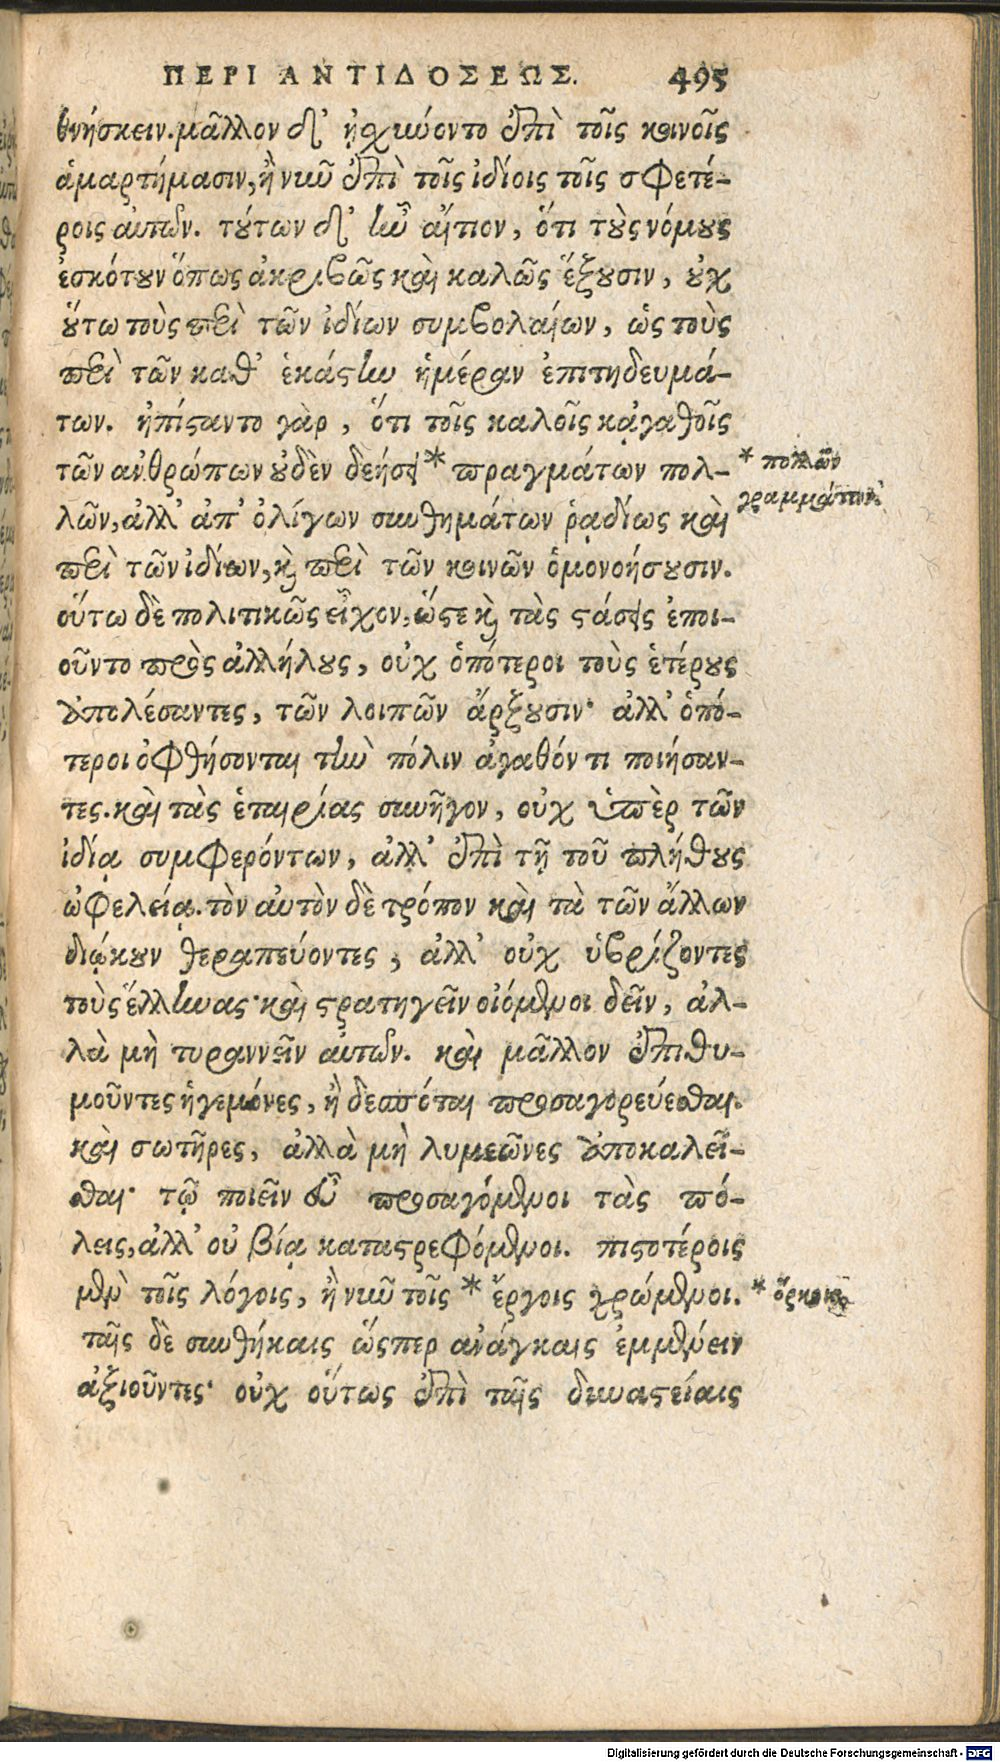 ΠΕΡΙ ΑΝΤΙΔΟΣΕΩΣ. 495
θνήσκειν. μᾶλλον δ' ᾐσχύνοντο ἐπὶ τοῖς κοινοῖς
ἁμαρτήμασιν, ἢ νῦν ἐπὶ τοῖς ἰδίοις τοῖς σφετέ-
ροις αὐτῶν. τούτων δ' ἦν αἴτιον, ὅτι τοὺς νόμους
ἐσκόπουν ὅπως ἀκριβῶς καὶ καλῶς ἕξουσιν, οὐχ
οὕτω τοὺς περὶ τῶν ἰδίων συμβολαίων, ὡς τοὺς
περὶ τῶν καθ' ἑκάστην ἡμέραν ἐπιτηδευμά-
των. ἠπίσταντο γὰρ, ὅτι τοῖς καλοῖς κἀγαθοῖς
τῶν ἀνθρώπων οὐδὲν δεήσει * πραγμάτων πολ-
* πολλῶν
γραμμάτων
λῶν, ἀλλ' ἀπ' ὀλίγων συνθημάτων ῥᾳδίως καὶ
περὶ τῶν ἰδίων, καὶ περὶ τῶν κοινῶν ὁμονοήσουσιν.
οὕτω δὲ πολιτικῶς εἶχον, ὥστε καὶ τὰς στάσεις ἐποι-
οῦντο πρὸς ἀλλήλους, οὐχ ὁπότεροι τοὺς ἑτέρους
ἀπολέσαντες, τῶν λοιπῶν ἄρξουσιν· ἀλλ' ὁπό-
τεροι ὀφθήσονται τὴν πόλιν ἀγαθόν τι ποιήσαν-
τες. καὶ τὰς ἑταιρίας συνῆγον, οὐχ ὑπὲρ τῶν
ἰδίᾳ συμφερόντων, ἀλλ' ἐπὶ τῇ τοῦ πλήθους
ὠφελείᾳ. τὸν αὐτὸν δὲ τρόπον καὶ τὰ τῶν ἄλλων
διῴκουν θεραπεύοντες, ἀλλ' οὐχ ὑβρίζοντες
τοὺς ἕλληνας· καὶ στρατηγεῖν οἰόμενοι δεῖν, ἀλ-
λὰ μὴ τυραννεῖν αὐτῶν. καὶ μᾶλλον ἐπιθυ-
μοῦντες ἡγεμόνες, ἢ δεσπόται προσαγορεύεσθαι.
καὶ σωτῆρες, ἀλλὰ μὴ λυμεῶνες ἀποκαλεῖ-
σθαι· τῷ ποιεῖν εὖ προσαγόμενοι τὰς πό-
λεις, ἀλλ' οὐ βίᾳ καταστρεφόμενοι. πιστοτέροις
μὲν τοῖς λόγοις, ἢ νῦν τοῖς * ἔργοις χρώμενοι.
* ὅρκοις
ταῖς δὲ συνθήκαις ὥσπερ ἀνάγκαις ἐμμένειν
ἀξιοῦντες· οὐχ οὕτως ἐπὶ ταῖς δυναστείαις
Digitalisierung gefördert durch die Deutsche Forschungsgemeinschaft - DFG